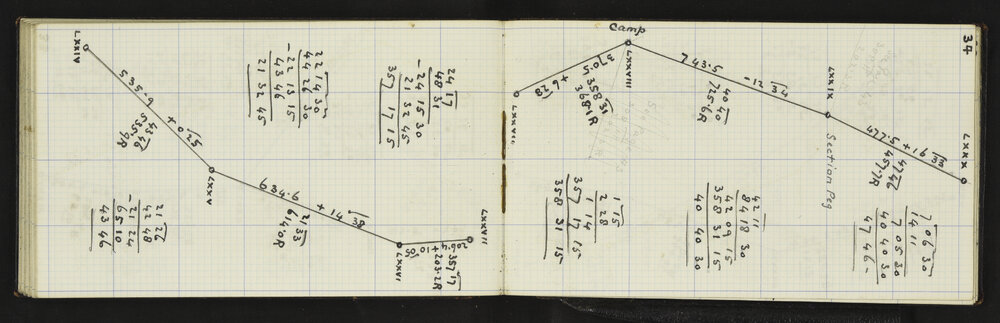 LXXIV
535·9
+ 0 25
43 46
535·9R
LXXV
22 14 30
44 26 30
- 22 13 15
43 46
21 32 45
21 26
42 48
- 21 24
65 10
43 46
634·6
+ 14 38
21 33
614·0R
24 17
48 31
- 24 15 30
21 32 45
357 17 15
LXXVI
206·4
+ 10 05
357 17
203·2R
LXXVII
34
Camp
LXXVII
370·5
+ 6 28
358 31
368·1R
LXXVIII
743·5
- 12 34
40 40
725·6R
LXXIX
Section Peg
477·5
+ 16 33
47 46
457·7R
LXXX
1 15
2 28
1 14
357 17 15
358 31 15
42 11
84 18 30
42 09 15
358 31 15
40 40 30
7 06 30
14 11
7 05 30
40 40 30
47 46 -